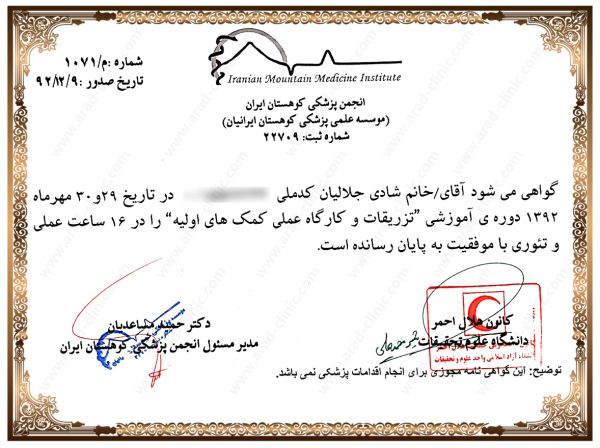 شماره :م/۱۰۷۱
تاریخ صدور :۹۲/۱۲/۹
Iranian Mountain Medicine Institute
انجمن پزشکی کوهستان ایران
(موسسه علمی پزشکی کوهستان ایرانیان)
شماره ثبت: ۲۲۷۰۹
گواهی می شود آقای/خانم شادی جلالیان کدملی در تاریخ ۲۹و۳۰ مهرماه
۱۳۹۲ دوره ی آموزشی "تزریقات و کارگاه عملی کمک های اولیه" را در ۱۶ ساعت عملی
و تئوری با موفقیت به پایان رسانده است.
کانون هلال احمر
دانشگاه علوم تحقیقات
دکتر حمید مساعدیان
مدیر مسئول انجمن پزشکی کوهستان ایران
توضیح: این گواهی نامه مجوزی برای انجام اقدامات پزشکی نمی باشد.
www.arad-clinic.com